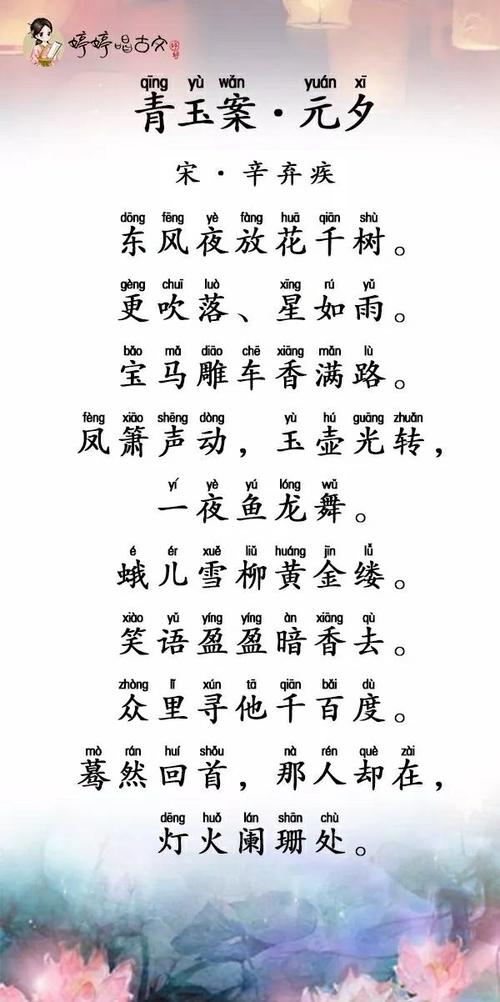 婷婷唱古文
qīng yù wǎn yuán xī
青玉案·元夕
宋·辛弃疾
dōng fēng yè fàng huā qiān shù
东风夜放花千树。
gèng chuī luò xīng rú yǔ
更吹落、星如雨。
bǎo mǎ diāo chē xiāng mǎn lù
宝马雕车香满路。
fèng xiāo shēng dòng yù hú guāng zhuǎn
凤箫声动，玉壶光转，
yí yè yú lóng wǔ
一夜鱼龙舞。
é ér xuě liǔ huáng jīn lǚ
蛾儿雪柳黄金缕。
xiào yǔ yíng yíng àn xiāng qù
笑语盈盈暗香去。
zhòng lǐ xún tā qiān bǎi dù
众里寻他千百度。
mò rán huí shǒu nà rén què zài
蓦然回首，那人却在，
dēng huǒ lán shān chù
灯火阑珊处。